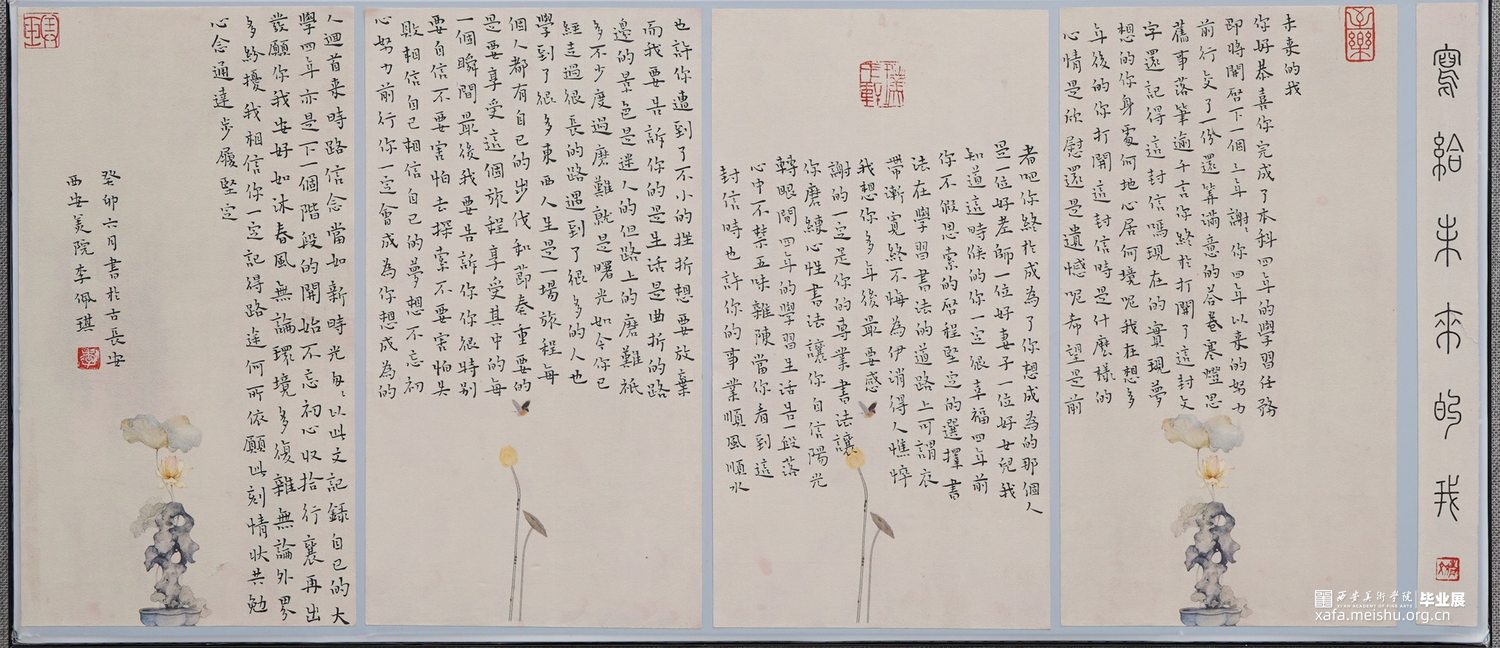 寫給未來的我
未来的我
你好恭喜你完成了本科四年的學習任務
即將開啓下一個三年謝〻你四年以来的努力
前行交了一份還算滿意的荅卷寒燈思
舊事落筆逾千言你終於打開了這封文
字還記得這封信嗎現在的實現夢
想的你身處何地心居何境呢我在想多
年後的你打開這封信時是什麽樣的
心情是欣慰還是遺憾呢希望是前
者吧你終於成為了你想成為的那個人
是一位好老師一位好妻子一位好女兒我
知道這時候的你一定很幸福四年前
你不假思索的啓程堅定的選擇書
法在學習書法的道路上可謂衣
帶漸寬終不悔為伊消得人憔悴
我想你多年後最要感
謝的一定是你的專業書法讓
你磨練心性書法讓你自信陽光
轉眼間四年的學習生活告一段落
心中不禁五味雜陳當你看到這
封信時也許你的事業順風順水
也許你遭到了不小的挫折想要放棄
而我要告訴你的是生活是曲折的路
邊的景色是迷人的但路上的磨難祇
多不少度過磨難就是曙光如今你已
經走過很長的路遇到了很多的人也
學到了很多東西人生是一場旅程每
個人都有自己的步伐和節奏重要的
是要享受這個旅程享受其中的每
一個瞬間最後我要告訴你你很特别
要自信不要害怕去探索不要害怕失
敗相信自己相信自己的夢想不忘初
心努力前行你一定會成為你想成為的
人迴首来時路信念當如新時光匆〻以此文記録自己的大
學四年亦是下一個階段的開始不忘初心收拾行裹再出
發願你我安好如沐春風無論環境多復雜無論外界
多紛擾我相信你一定記得路途何所依願此刻情狀共勉
心念通達步履堅定
癸卯六月書於古長安
西安美院李佩琪
西安美术学院
XI'AN ACADEMY OF FINE ARTS
毕业展
xafa.meishu.org.cn